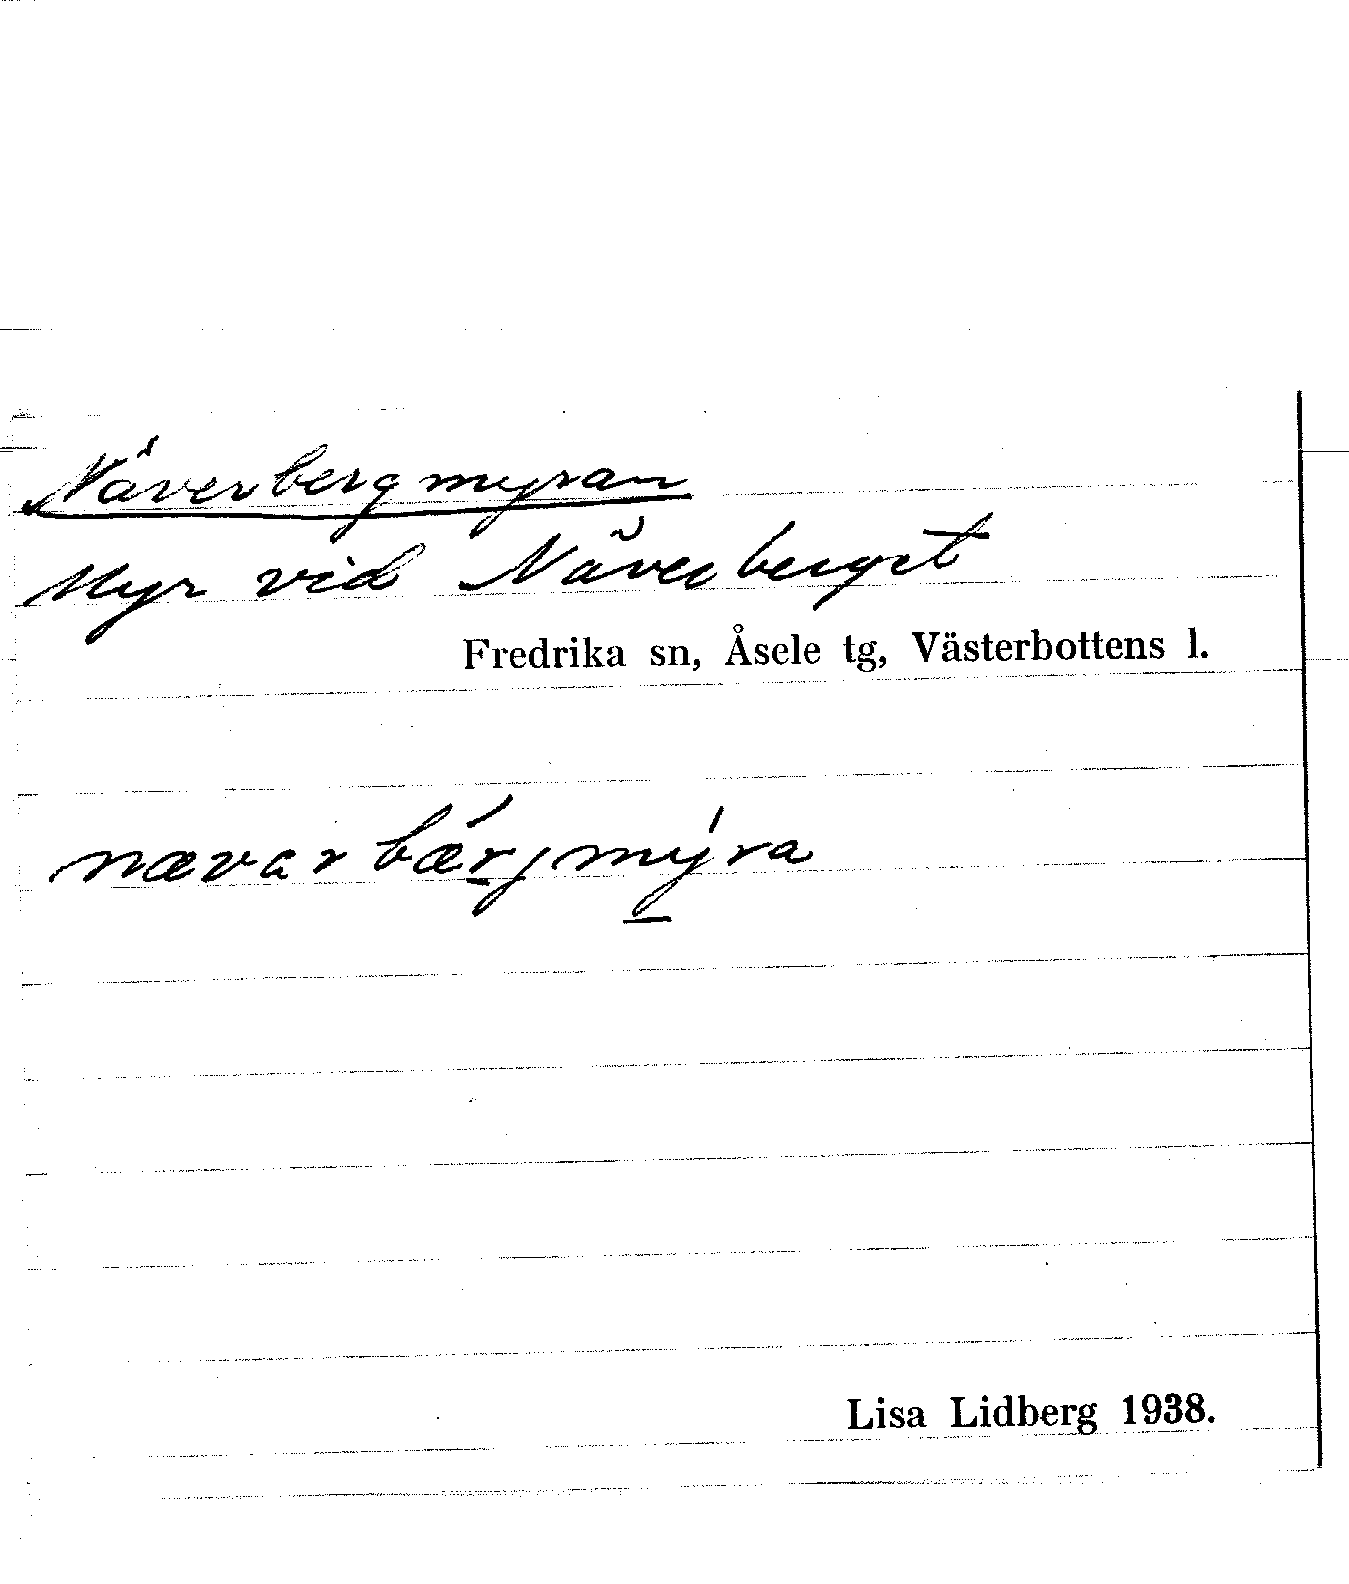 Näverbergmyran
Myr vid Näverberget
Fredrika sn, Åsele tg, Västerbottens l.
nævarbǽrjmýra
Lisa Lidberg 1938.